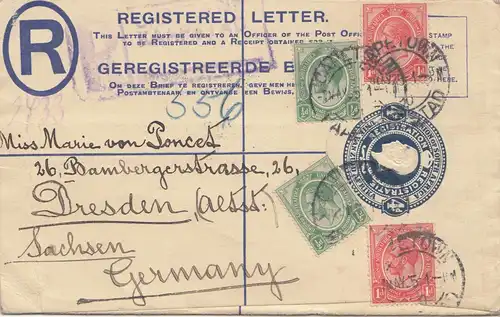 REGISTERED LETTER.
R
THIS LETTER MUST BE GIVEN TO AN OFFICER OF THE POST
TO BE REGISTERED AND A RECEIPT OBTAINED
STAMP
GEREGISTREERDE
DEZE BRIEF TE REGISTREREN, GEVE MEN HEM
POSTAMBTENAAR, EN ONTVANGE EEN BEWIJS,
HERE.
556
Miss Marie von Poncet
26, Bambergerstrasse, 26,
Dresden (Altst.)
Sachsen
Germany
REGISTRATION
REGISTRATIE
CAPETOWN
½d
½d
1d